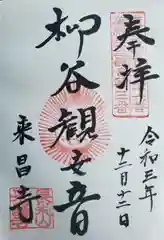 奉拝
令和三年
十二月十二日
柳谷観世音
来昌寺